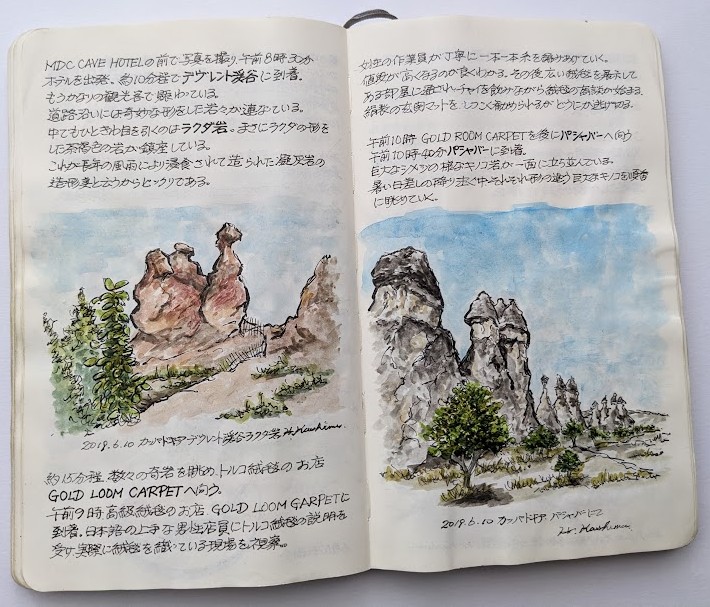 MDC CAVE HOTELの前で写真を撮り、午前8時30分
ホテルを出発。約10分程でデヴレント渓谷に到着。
もうかなりの観光客で賑わっている。
道路沿いには奇妙な形をした岩々が連なっている。
中でもひときわ目を引くのはラクダ岩。まさにラクダの形を
した茶褐色の岩が鎮座している。
これが長年の風雨により浸食されて造られた凝灰岩の
造形美と云うからビックリである。
2019.6.10 カッパドキア・デヴレント渓谷ラクダ岩
約15分程、数々の奇岩を眺め、トルコ絨毯のお店
GOLD LOOM CARPETへ向う。
午前9時高級絨毯のお店 GOLD LOOM GARPETに
到着。日本語の上手な男性店員にトルコ絨毯の説明を
受け、実際に絨毯を織っている現場を視察。
女性の作業員が丁寧に一本一本糸を編みあげていく。
値段が高くなるのが良くわかる。その後広い絨毯を展示して
ある部屋に通されチャイを飲みながら絨毯の商談が始まる。
絹製の玄関マットをしつこく勧められるがどうにか逃げる。
午前10時 GOLD ROOM CARPETを後にパシャバーへ向う
午前10時40分パシャバーに到着。
巨大なシメジの様なキノコ岩が一面に立ち並んでいる。
暑い日差しの降り注ぐ中、それぞれ形の違う巨大なキノコを順番
に眺めていく。
2019.6.10 カッパドキア パシャバーにて